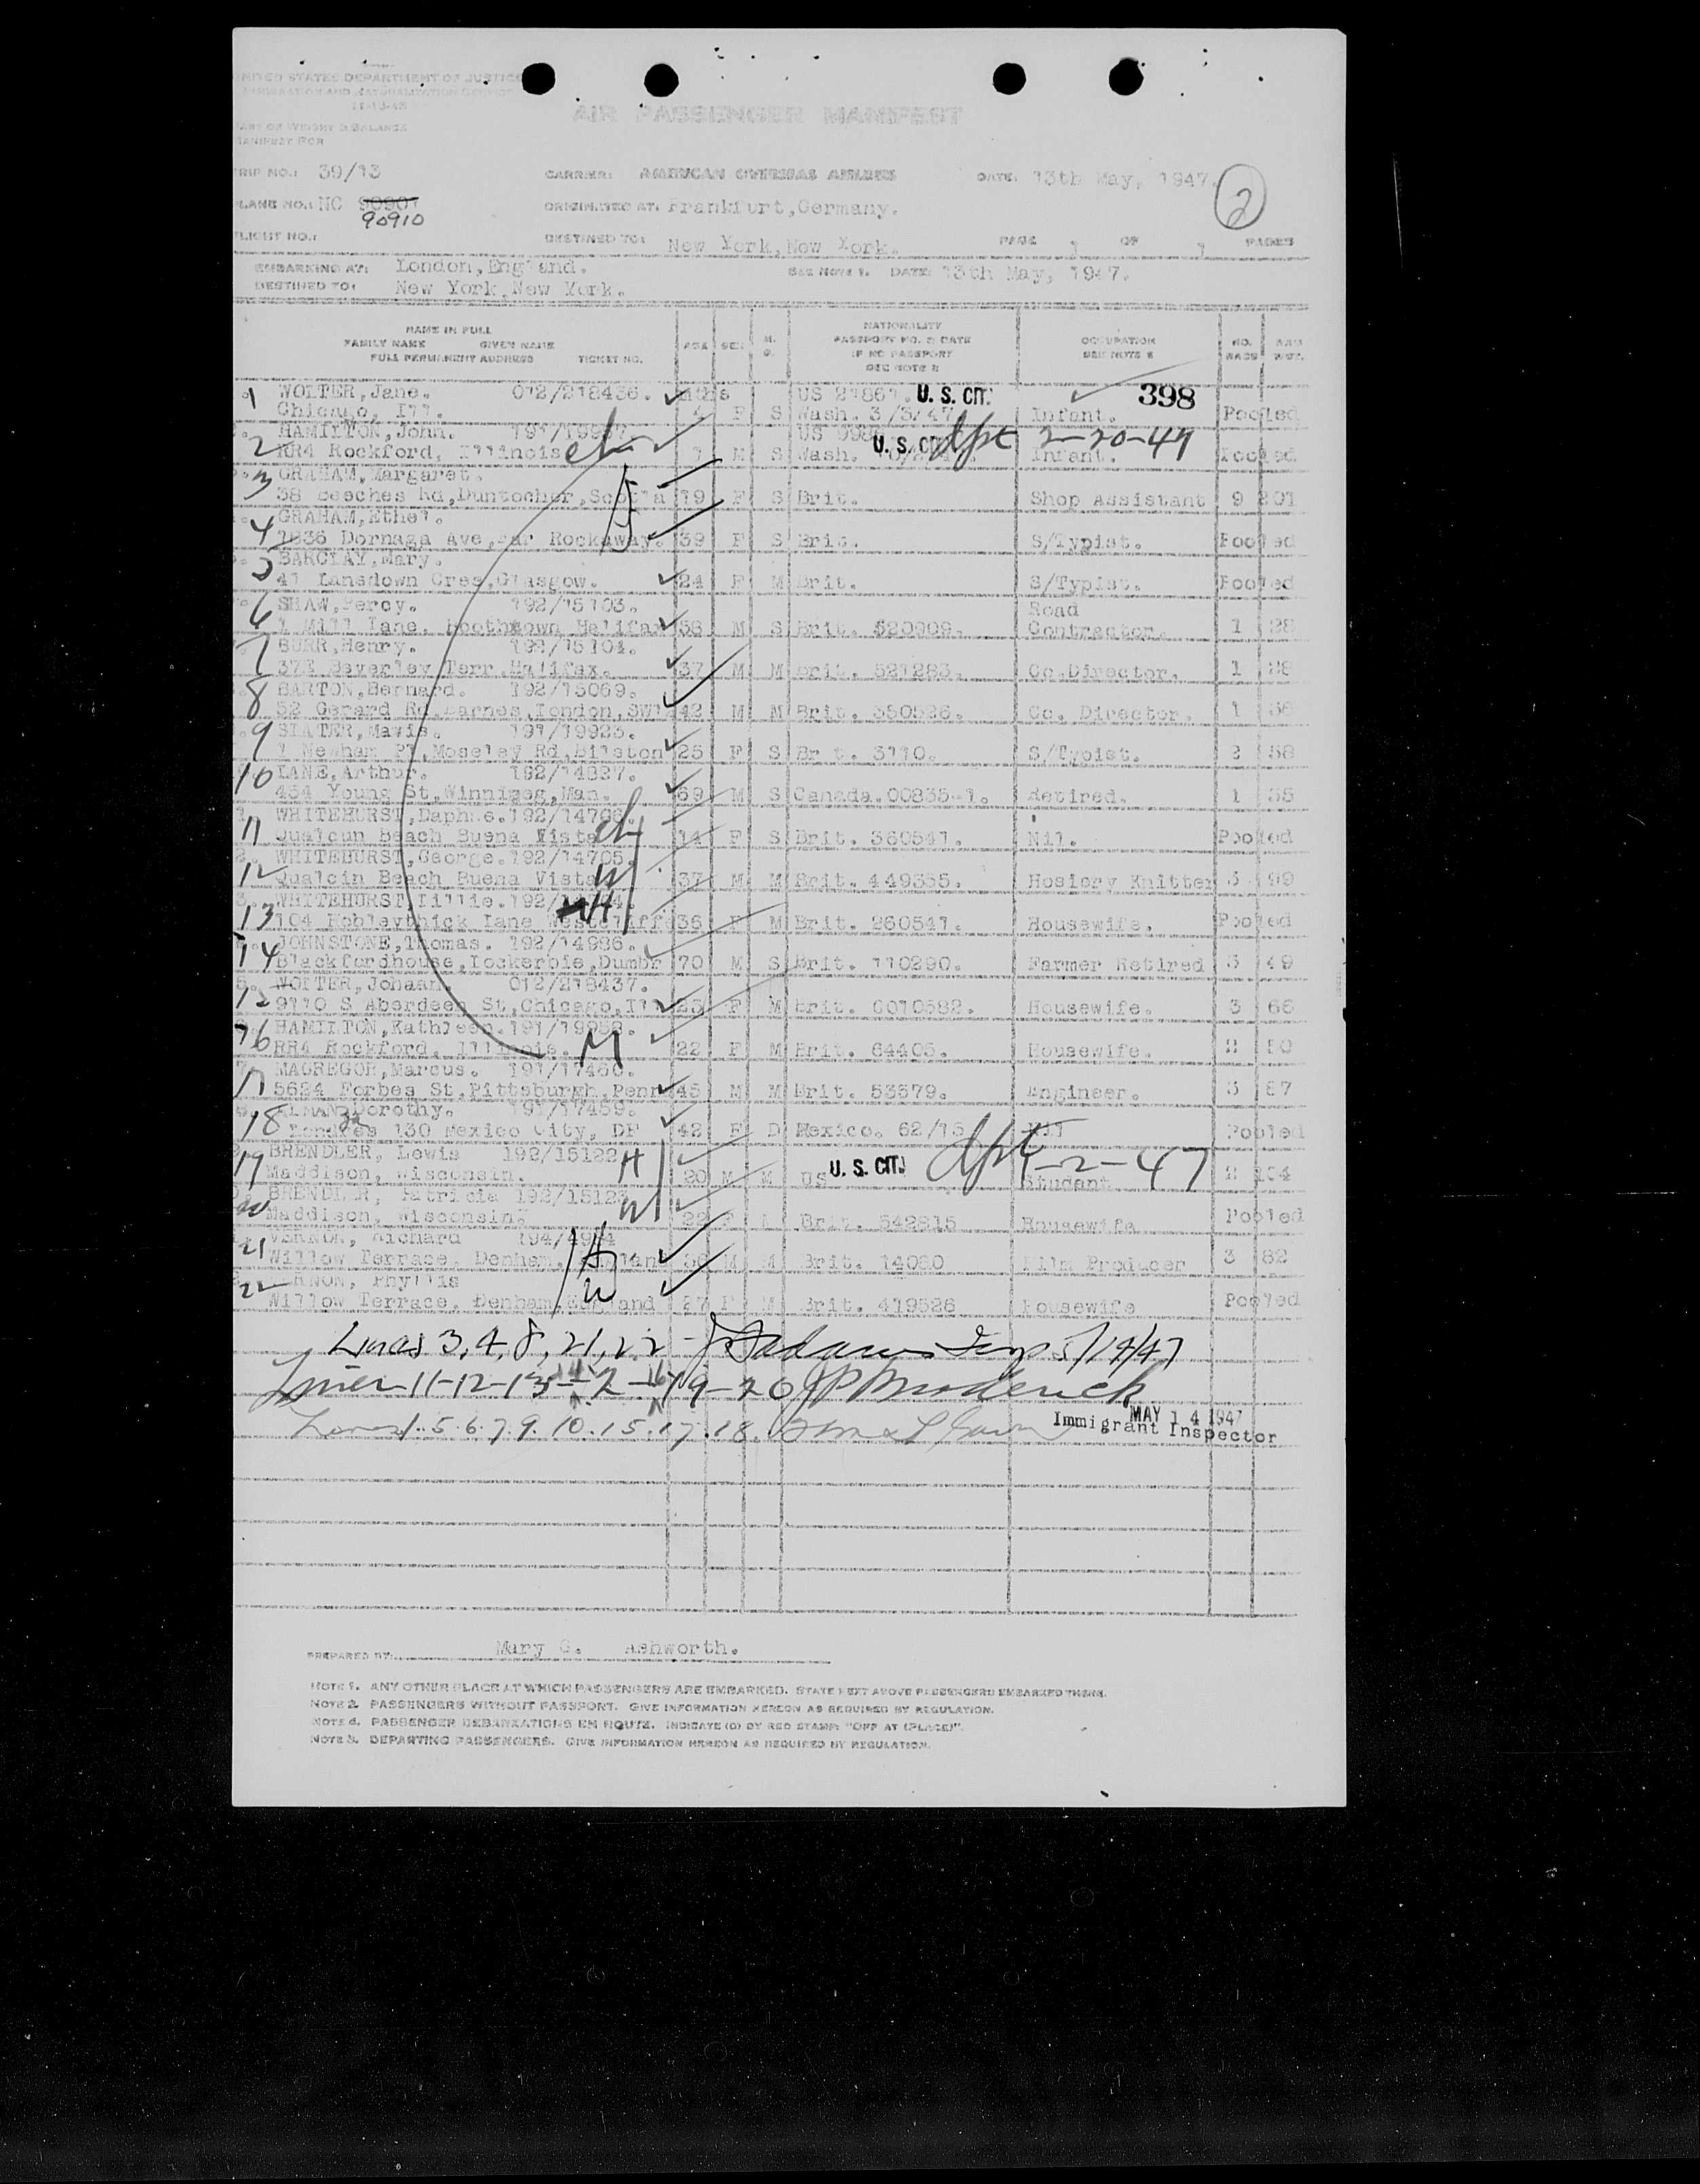 UNITED STATES DEPARTMENT OF JUSTICE
IMMIGRATION AND NATURALIZATION SERVICE
11-13-45
AIR PASSENGER MANIFEST
PART OF WEIGHT & BALANCE
MANIFEST FOR
TRIP NO.: 39/13 CARRIER: AMERICAN OVERSEAS AIRLINES DATE: 13th May, 1947. 2
PLANE NO.: NC 90901 ORIGINATED AT: Frankfurt, Germany.
90910
FLIGHT NO.: DESTINED TO: New York, New York. PAGE 1 OF 1 PAGES
EMBARKING AT: London, England. SEE NOTE 1. DATE: 13th May, 1947.
DESTINED TO: New York, New York.
NAME IN FULL
FAMILY NAME GIVEN NAME
FULL PERMANENT ADDRESS TICKET NO.
AGE SEX M. S.
NATIONALITY
PASSPORT NO. & DATE
IF NO PASSPORT
SEE NOTE 2
OCCUPATION
SEE NOTE 2
NO. BAGS BAG WGT.
1 WOLTER, Jane. 012/218436. mths US 21861. U. S. CIT. 398
Chicago, Ill. 4 F S Wash. 3/3/47 Infant. Pooled
2 HAMILTON, John. 191/19957 US U. S. CIT. 2-20-47
RR4 Rockford, Illinois ch 1 M S Wash. Infant. Pooled
3 GRAHAM, Margaret.
38 Beeches Rd, Duntocher, Scotla 19 F S Brit. Shop Assistant 9 201
4 GRAHAM, Ethel.
1836 Dornaga Ave, Far Rockaway. 39 F S Brit. S/Typist. Pooled
5 BARCLAY, Mary.
41 Lansdown Cres, Glasgow. 24 F M Brit. S/Typist. Pooled
6 SHAW, Percy. 192/15103. Road
1 Mill Lane, Boothtown Halifax 56 M S Brit. 520909. Contractor. 1 28
7 BURR, Henry. 192/15104.
371 Beverley Terr. Halifax. 37 M M Brit. 521283. Co.Director. 1 28
8 BARTON, Bernard. 192/15069.
52 Gerard Rd, Barnes, London, SW13 42 M M Brit. 350526. Co. Director. 1 56
9 SLATER, Mavis. 191/19923.
1 Newham Pl, Moseley Rd, Bilston 25 F S Brit. 3110. S/Typist. 2 58
10 LANE, Arthur. 192/14827.
454 Young St, Winnipeg, Man. 69 M S Canada. 00835-1. Retired. 1 55
11 WHITEHURST, Daphne. 192/14706.
Qualcun Beach Buena Vista ch 14 F S Brit. 360541. Nil. Pooled
12 WHITEHURST, George. 192/14705.
Qualcin Beach Buena Vista 37 M M Brit. 449355. Hosiery Knitter 3 99
13 WHITEHURST, Lillie. 192/
104 Hobleythick Lane Westcliff 36 F M Brit. 260541. Housewife. Pooled
14 JOHNSTONE, Thomas. 192/14986.
Blackfordhouse, Lockerbie, Dumbr 70 M S Brit. 110290. Farmer Retired 3 49
WOLTER, Johaan. 012/218437.
9110 S Aberdeen St, Chicago, Ill 23 F M Brit. 0010582. Housewife. 3 66
16 HAMILTON, Kathleen. 191/19958.
RR4 Rockford, Illinois. M 22 F M Brit. 64405. Housewife. 2 50
17 MACREGOR, Marcus. 191/17460.
5624 Forbes St, Pittsburgh, Penn 45 M M Brit. 53679. Engineer. 3 87
18 Dorothy. 191/17459.
Londres 130 Mexico City, DF 42 F D Mexico. 62/15 Nil Pooled
19 BRENDLER, Lewis 192/15122 H
Maddison, Wisconsin. 20 M M US U. S. CIT. 1-2-47 Student 2 104
20 BRENDLER, Patricia 192/15123 W
Maddison, Wisconsin. 22 F M Brit. 542815 Housewife Pooled
21 VERNON, Richard 194/4944 H
Willow Terrace, Denham, England 36 M M Brit. 14080 Film Producer 3 82
22 VERNON, Phyllis W
Willow Terrace, Denham, England 27 F M Brit. 419526 Housewife Pooled
Lines 3, 4, 8, 21, 22 Adams Insp 5/14/47
Lines 11-12-13-14-2-16-19-20 JP Broderick
Lines 1. 5. 6. 7. 9. 10. 15. 17. 18.
MAY 14 1947
Immigrant Inspector
PREPARED BY: Mary G. Ashworth.
NOTE 1. ANY OTHER PLACE AT WHICH PASSENGERS ARE EMBARKED. STATE NEXT ABOVE PASSENGERS EMBARKED THERE.
NOTE 2. PASSENGERS WITHOUT PASSPORT. GIVE INFORMATION HEREON AS REQUIRED BY REGULATION.
NOTE 4. PASSENGER DEBARKATIONS EN ROUTE. INDICATE (D) BY RED STAMP: "OFF AT (PLACE)".
NOTE 5. DEPARTING PASSENGERS. GIVE INFORMATION HEREON AS REQUIRED BY REGULATION.